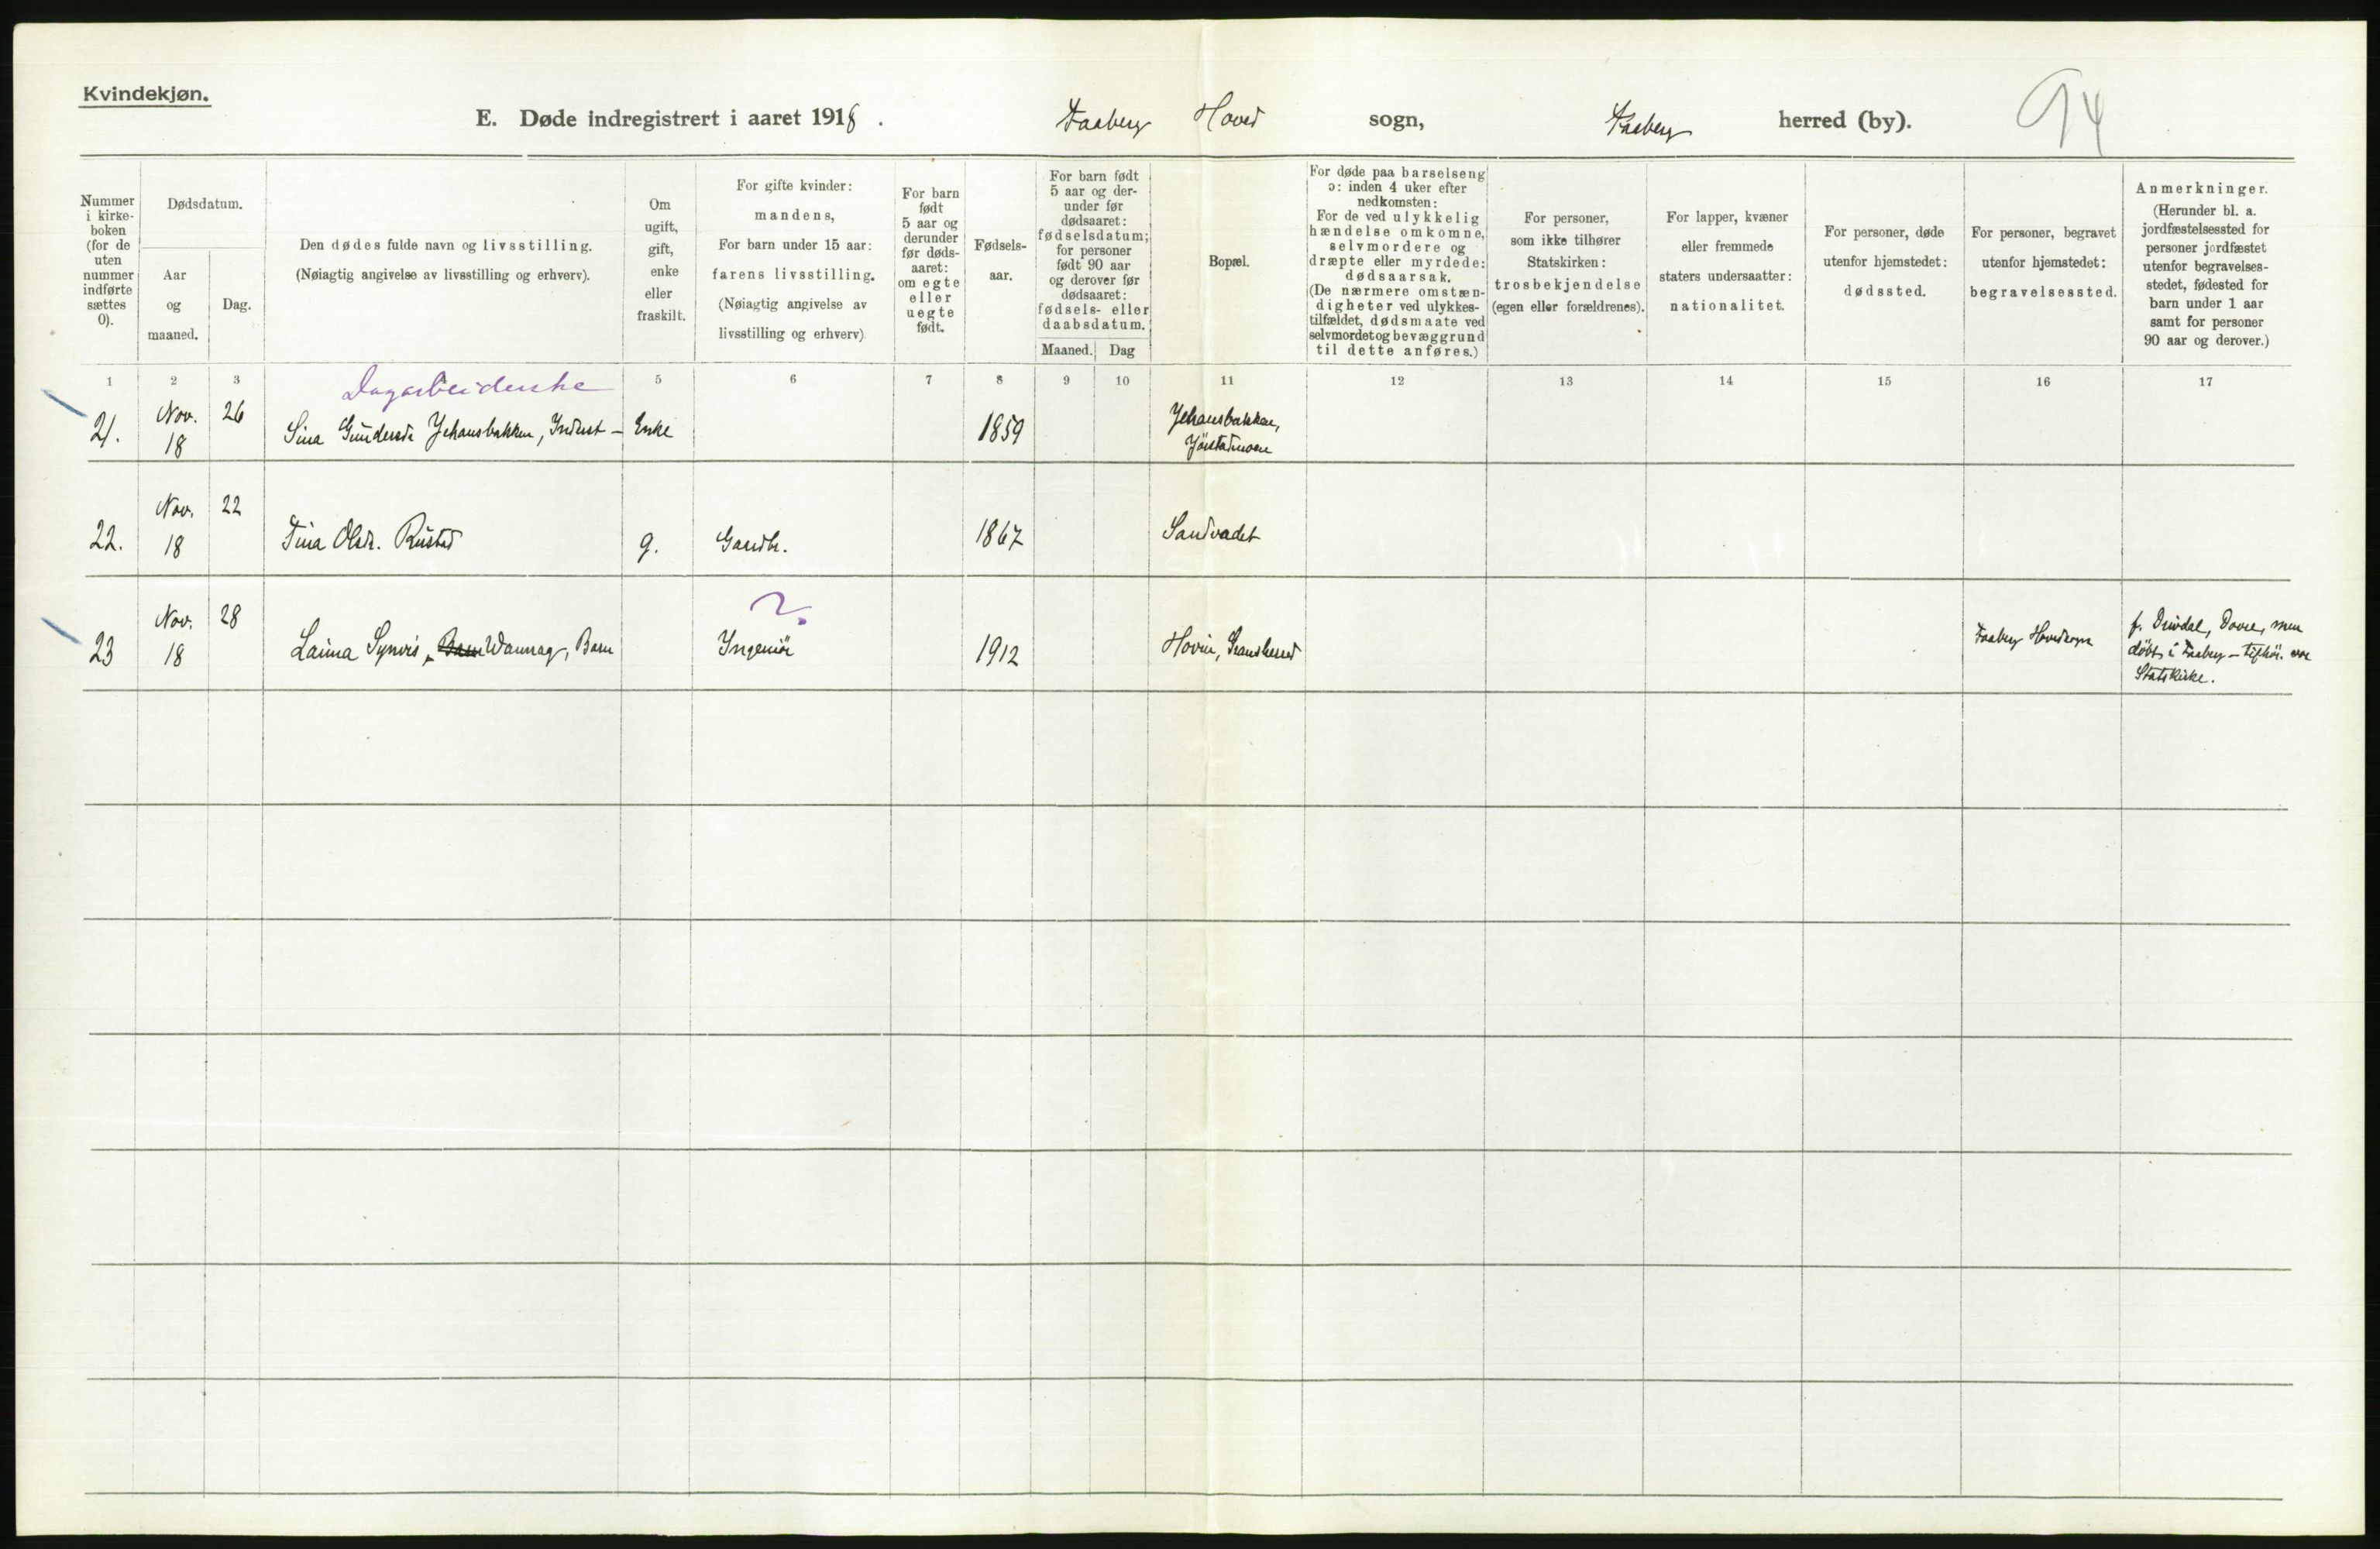 Kvindekjøn.
E. Døde indregistrert i aaret 1918.
Faaberg Hoved sogn, Faaberg herred (by).
94
Nummer
i kirke-
boken
(for de
uten
nummer
indførte
sættes
0).
Dødsdatum.
Aar
og
maaned.
Dag.
Den dødes fulde navn og livsstilling.
(Nøiagtig angivelse av livsstilling og erhverv).
Om
ugift,
gift,
enke
eller
fraskilt.
For gifte kvinder:
mandens,
For barn under 15 aar:
farens livsstilling.
(Nøiagtig angivelse av
livsstilling og erhverv)
For barn
født
5 aar og
derunder
før døds-
aaret:
om egte
eller
uegte
født.
Fødsels-
aar.
For barn født
5 aar og der-
under før
dødsaaret:
fødselsdatum;
for personer
født 90 aar
og derover før
dødsaaret:
fødsels- eller
daabsdatum.
Maaned. Dag
Bopæl.
For døde paa barselseng
ɔ: inden 4 uker efter
nedkomsten:
For de ved ulykkelig
hændelse omkomne,
selvmordere og
dræpte eller myrdede:
dødsaarsak.
(De nærmere omstæn-
digheter ved ulykkes-
tilfældet, dødsmaate ved
selvmordet og bevæggrund
til dette anføres.)
For personer,
som ikke tilhører
Statskirken:
trosbekjendelse
(egen eller forældrenes).
For lapper, kvæner
eller fremmede
staters undersaatter:
nationalitet.
For personer, døde
utenfor hjemstedet:
dødssted.
For personer, begravet
utenfor hjemstedet:
begravelsessted.
Anmerkninger.
(Herunder bl. a.
jordfæstelsessted for
personer jordfæstet
utenfor begravelses-
stedet, fødested for
barn under 1 aar
samt for personer
90 aar og derover.)
1 2 3 5 6 7 8 9 10 11 12 13 14 15 16 17
Dagarbeiderske
21. Nov. 18 26 Sina Gundersdr Jehansbakken, Inderst - Enke 1859 Jehansbakken,
Jörstadmoen
22. Nov. 18 22 Tina Olsdr. Rustad g. Gaardbr. 1867 Sandvadet
?
23 Nov. 18 28 Laima Synvis, Barn Wannag, Barn Ingeniör 1912 Hovin, Gransherred Faaberg Hovedsogn
f. Drivdal, Dovre, men
döbt i Faaberg - tilhör. vor
Statskirke.